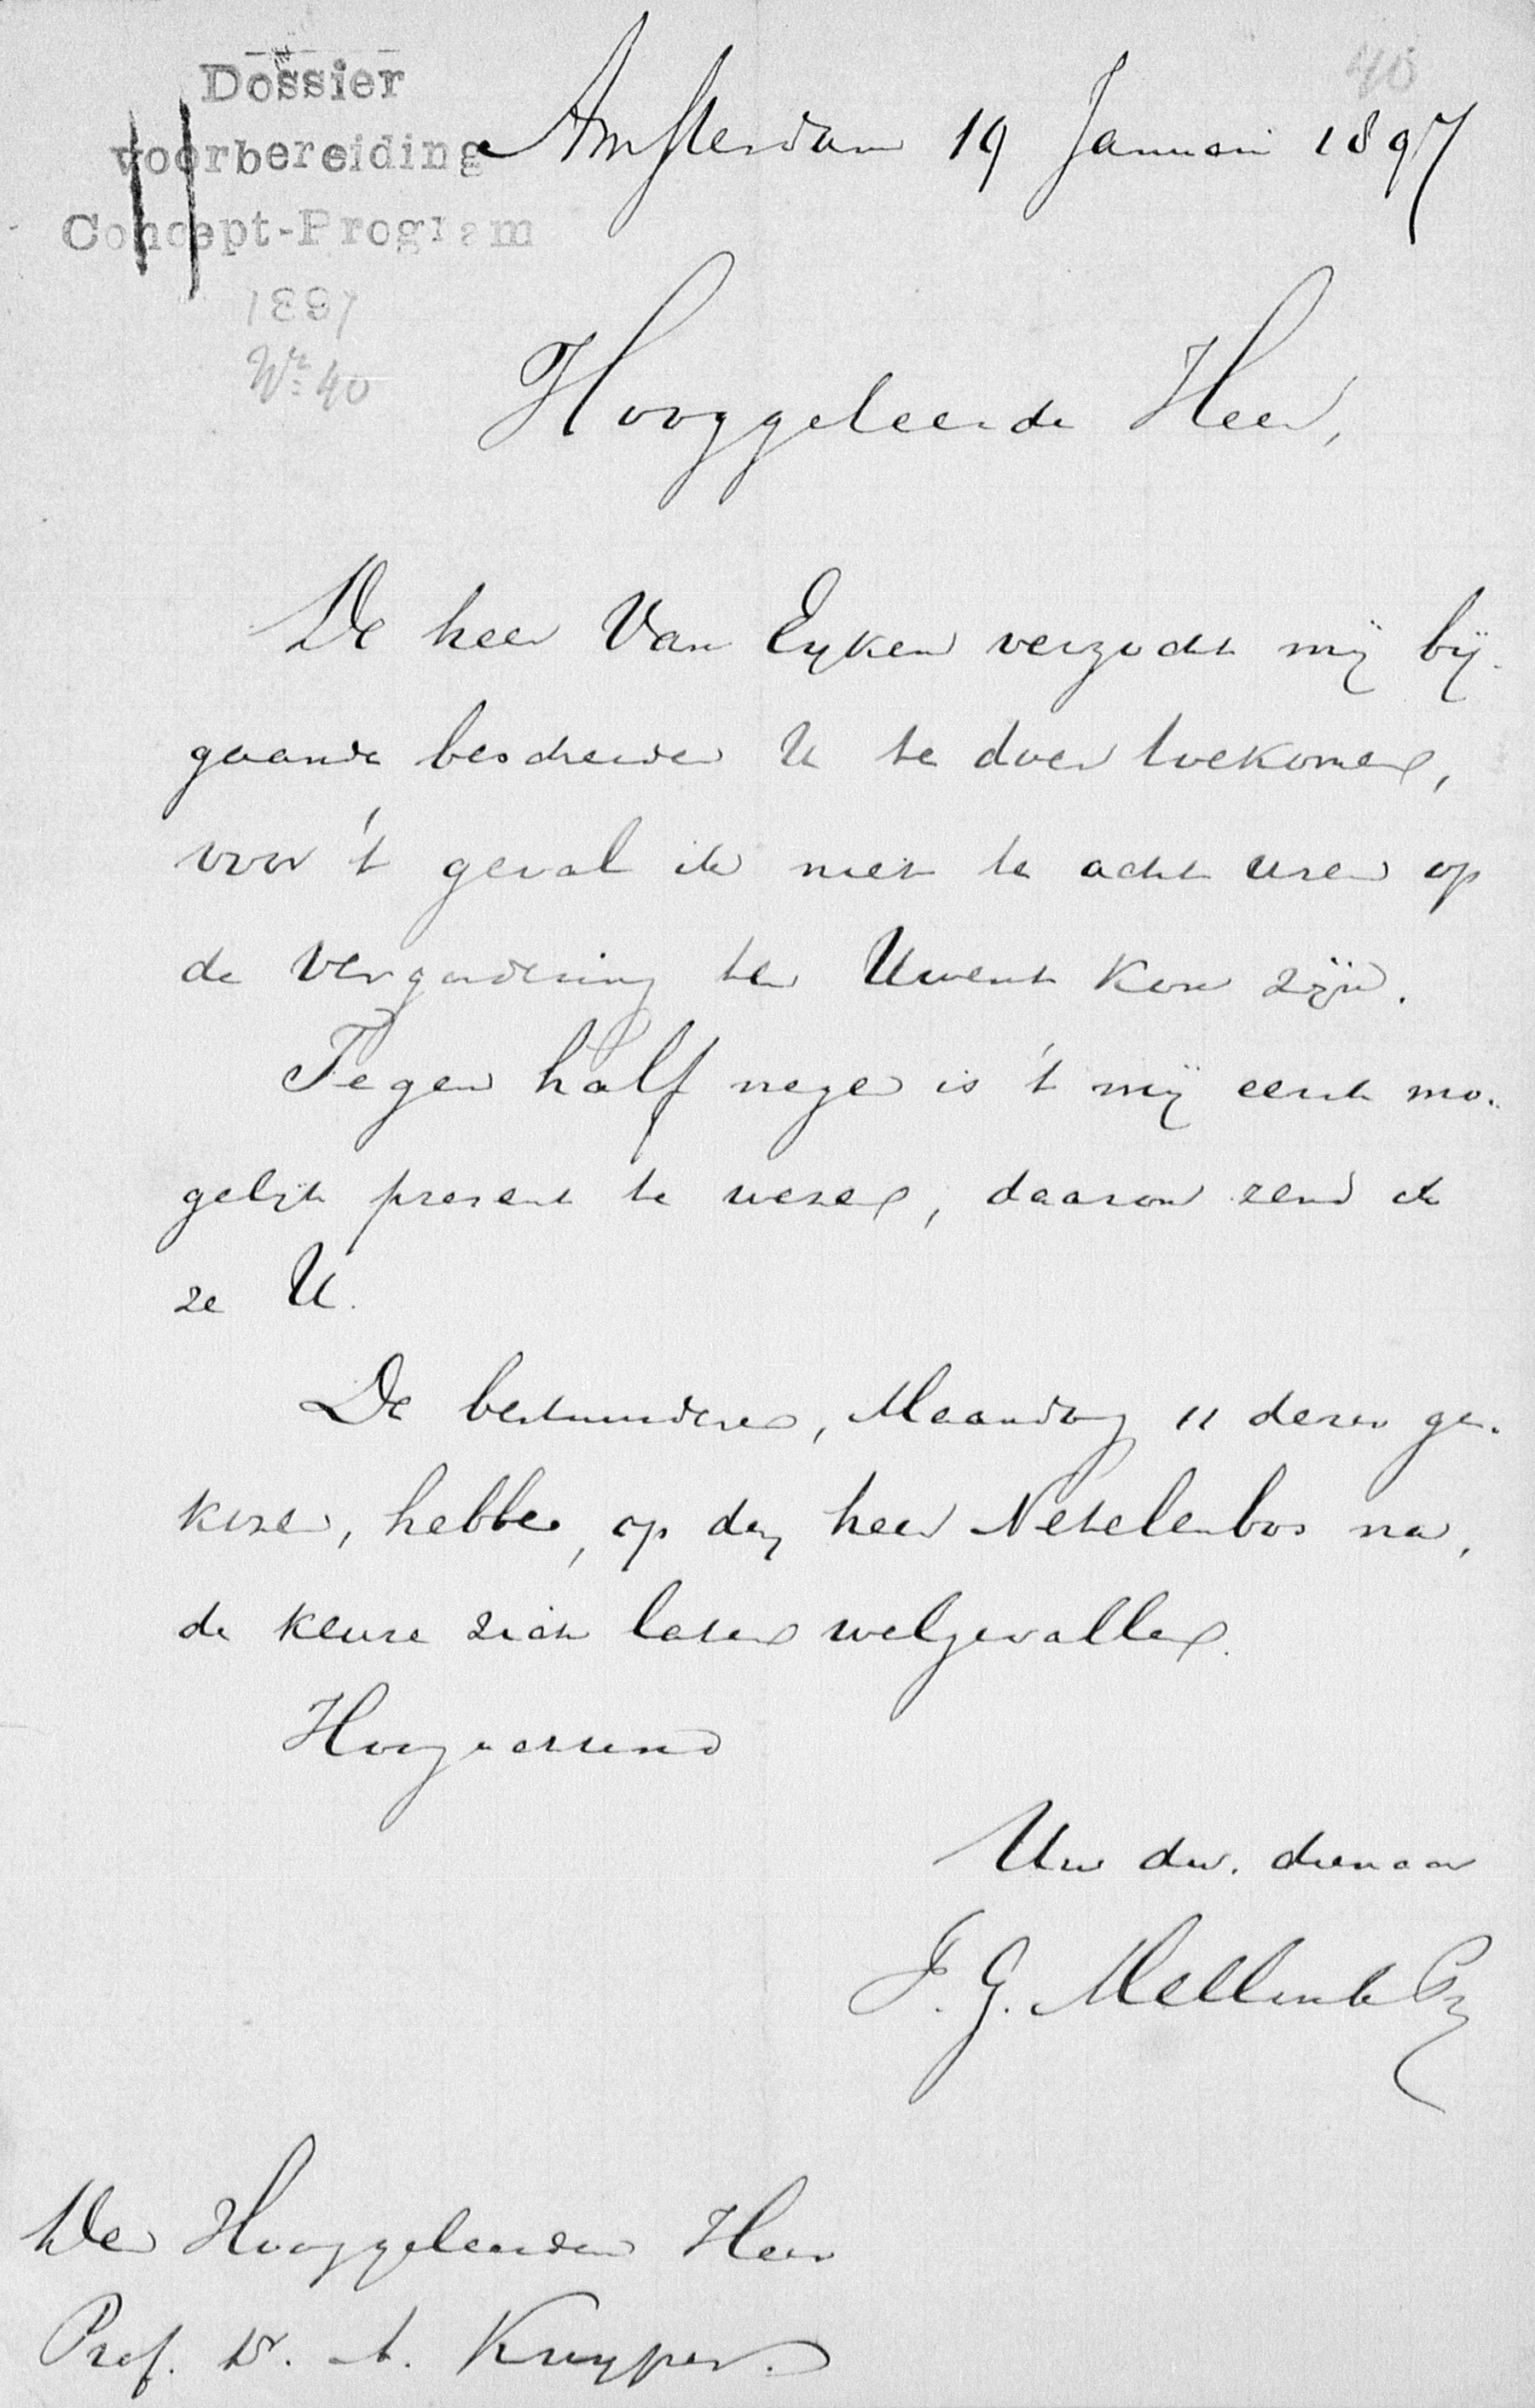 40
Dossier
voorbereiding
Concept-Program
1897
Nr. 40
Amsterdam 19 Januari 1897
Hooggeleerde Heer,
De heer Van Eyken verzocht mij bij-
gaande bescheiden U te doen toekomen,
voor 't geval ik niet te acht uren op
de vergadering ten Uwent kon zijn.
Tegen half negen is 't mij eerst mo-
gelijk present te wezen, daarom zend ik
ze U.
De bestuurderen, Maandag 11 dezer ge-
kozen, hebben, op den heer Netelenbos na,
de keuze zich laten welgevallen.
Hoogachtend
Uw dw. dienaar
J. G. Mellink Gz
Den Hooggeleerden Heer
Prof. Dr. A. Kuyper.